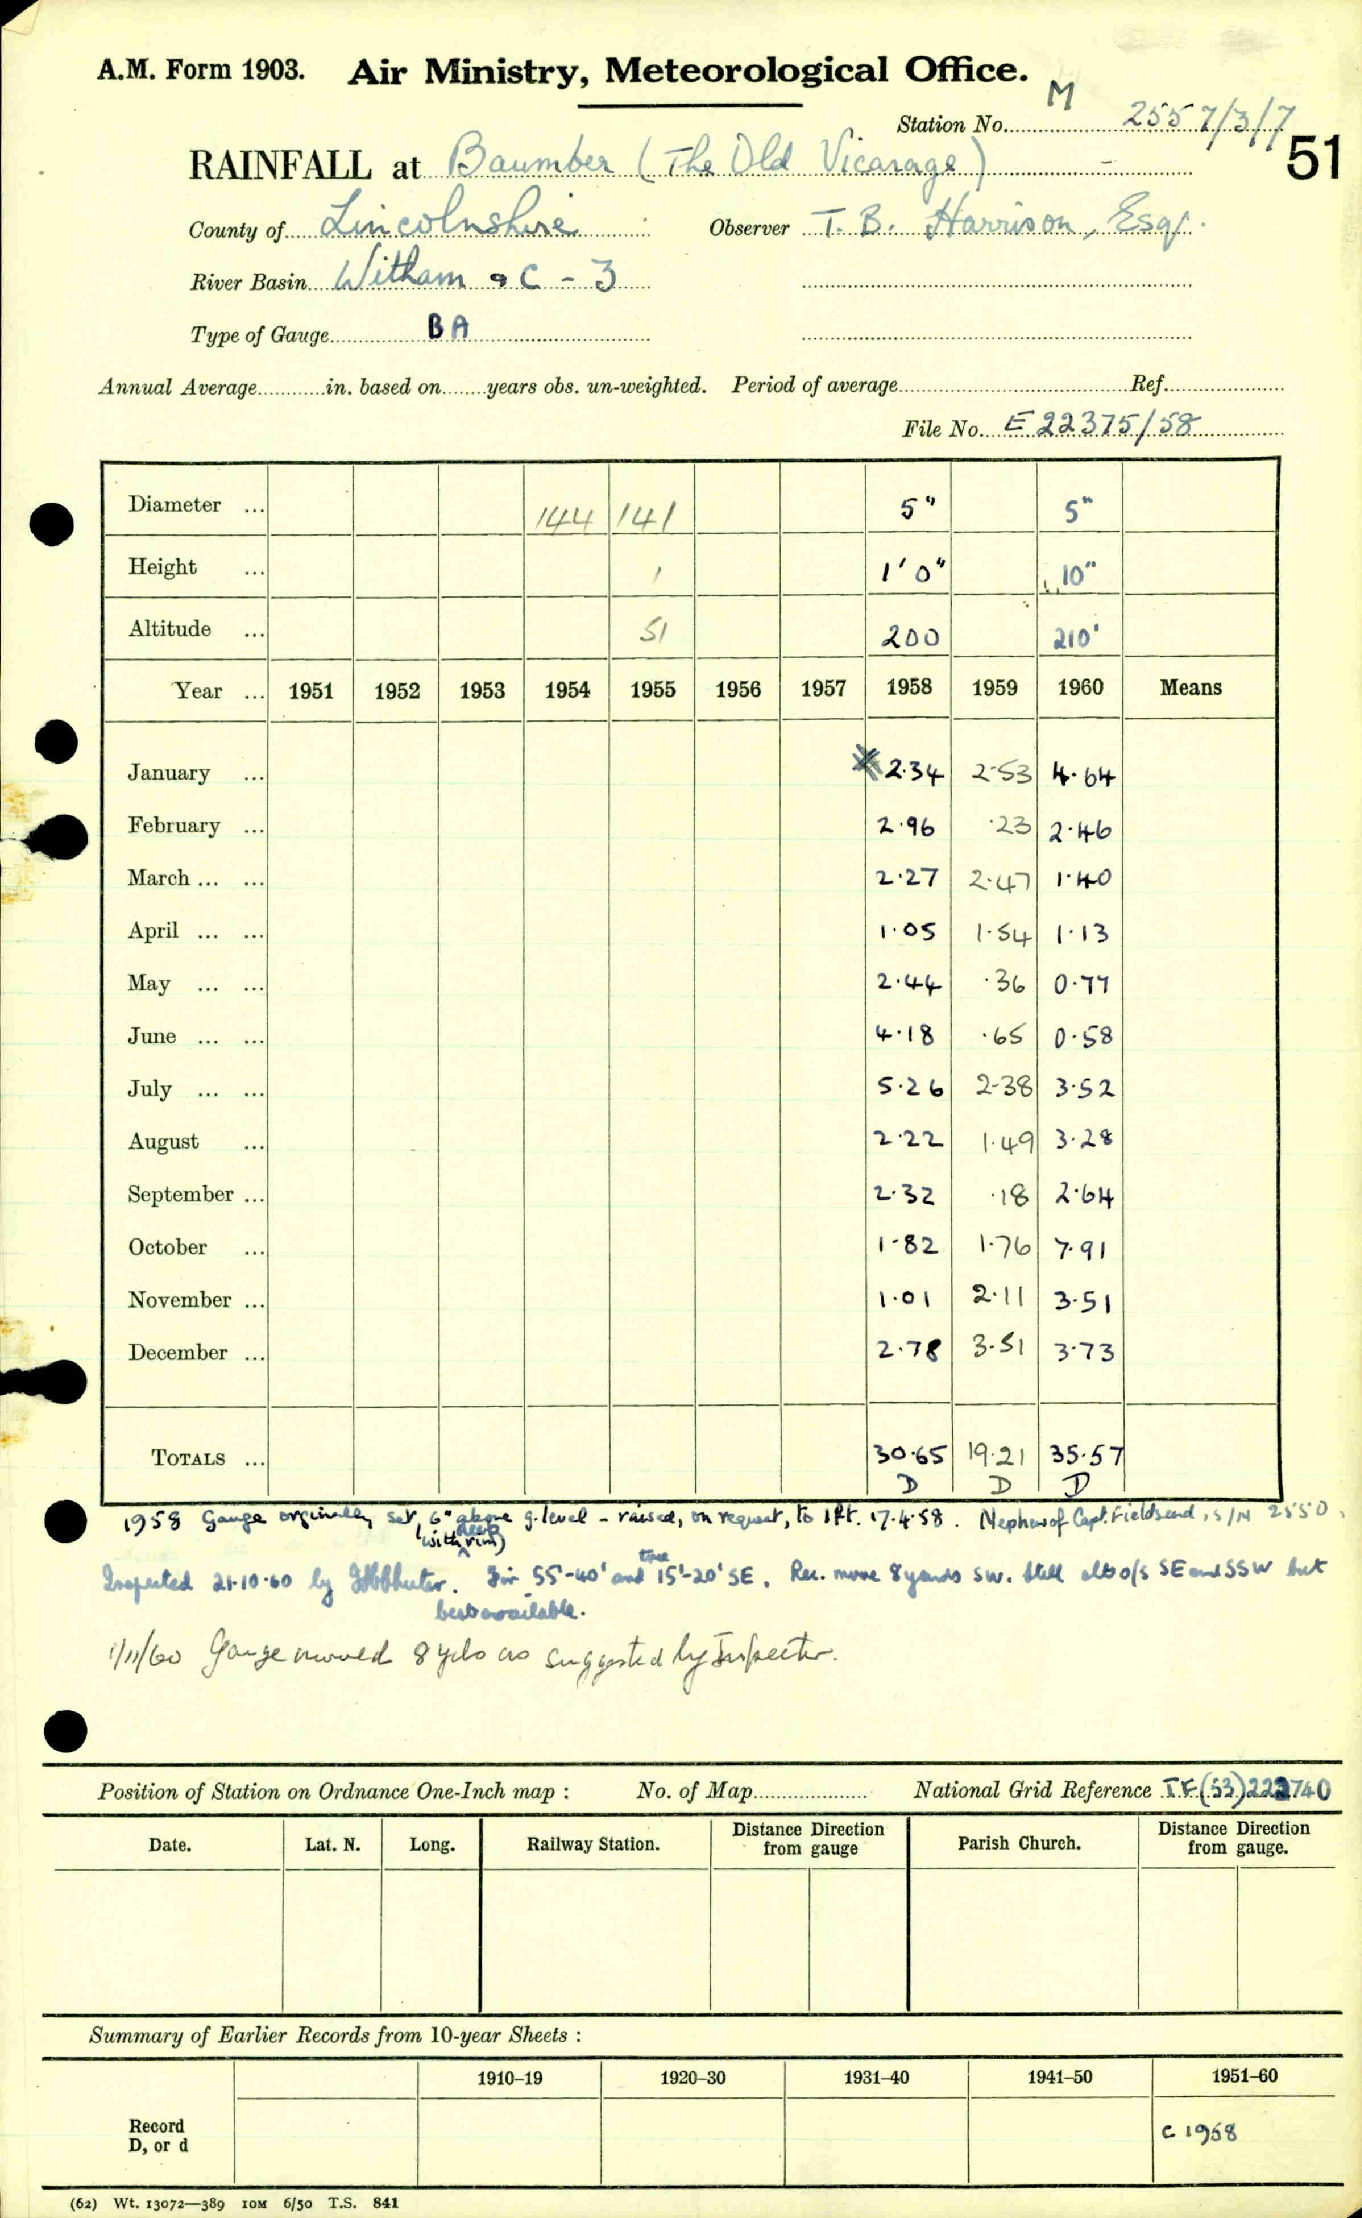 A.M. Form 1903. Air Ministry, Meteorological Office.
M
Station No. 2557/3/7
51
RAINFALL at Baumber (The Old Vicarage)
County of Lincolnshire Observer T. B. Harrison, Esq.
River Basin Witham & C - 3
Type of Gauge BA
Annual Average in. based on years obs. un-weighted. Period of average Ref.
File No. E 22375/58
Diameter ... 144 141 5" 5"
Height ... 1 1'0" 10"
Altitude ... 51 200 210'
Year ... 1951 1952 1953 1954 1955 1956 1957 1958 1959 1960 Means
January ... 2.34 2.53 4.64
February ... 2.96 .23 2.46
March ... ... 2.27 2.47 1.40
April ... ... 1.05 1.54 1.13
May ... ... 2.44 .36 0.77
June ... ... 4.18 .65 0.58
July ... ... 5.26 2.38 3.52
August ... 2.22 1.49 3.28
September ... 2.32 .18 2.64
October ... 1.82 1.76 7.91
November ... 1.01 2.11 3.51
December ... 2.78 3.51 3.73
TOTALS ... 30.65 19.21 35.57
D D D
1958 Gauge orginally set 6" above g. level - raised, on request, to 1 ft. 17.4.58. Nephew of Capt. Fieldsend, S/N 2550.
(with deep rim)
Inspected 21.10.60 by Fir 55'-40' and tree 15'-20' SE. Rec. move 8 yards SW. Still alto o/s SE and SSW but
best available.
1/11/60 Gauge moved 8 yds as suggested by Inspector.
Position of Station on Ordnance One-Inch map : No. of Map National Grid Reference TF(53)222740
Date. Lat. N. Long. Railway Station. Distance Direction from gauge Parish Church. Distance Direction from gauge.
Summary of Earlier Records from 10-year Sheets :
1910–19 1920–30 1931–40 1941–50 1951–60
Record
D, or d
c 1958
(62) Wt. 13072—389 10M 6/50 T.S. 841